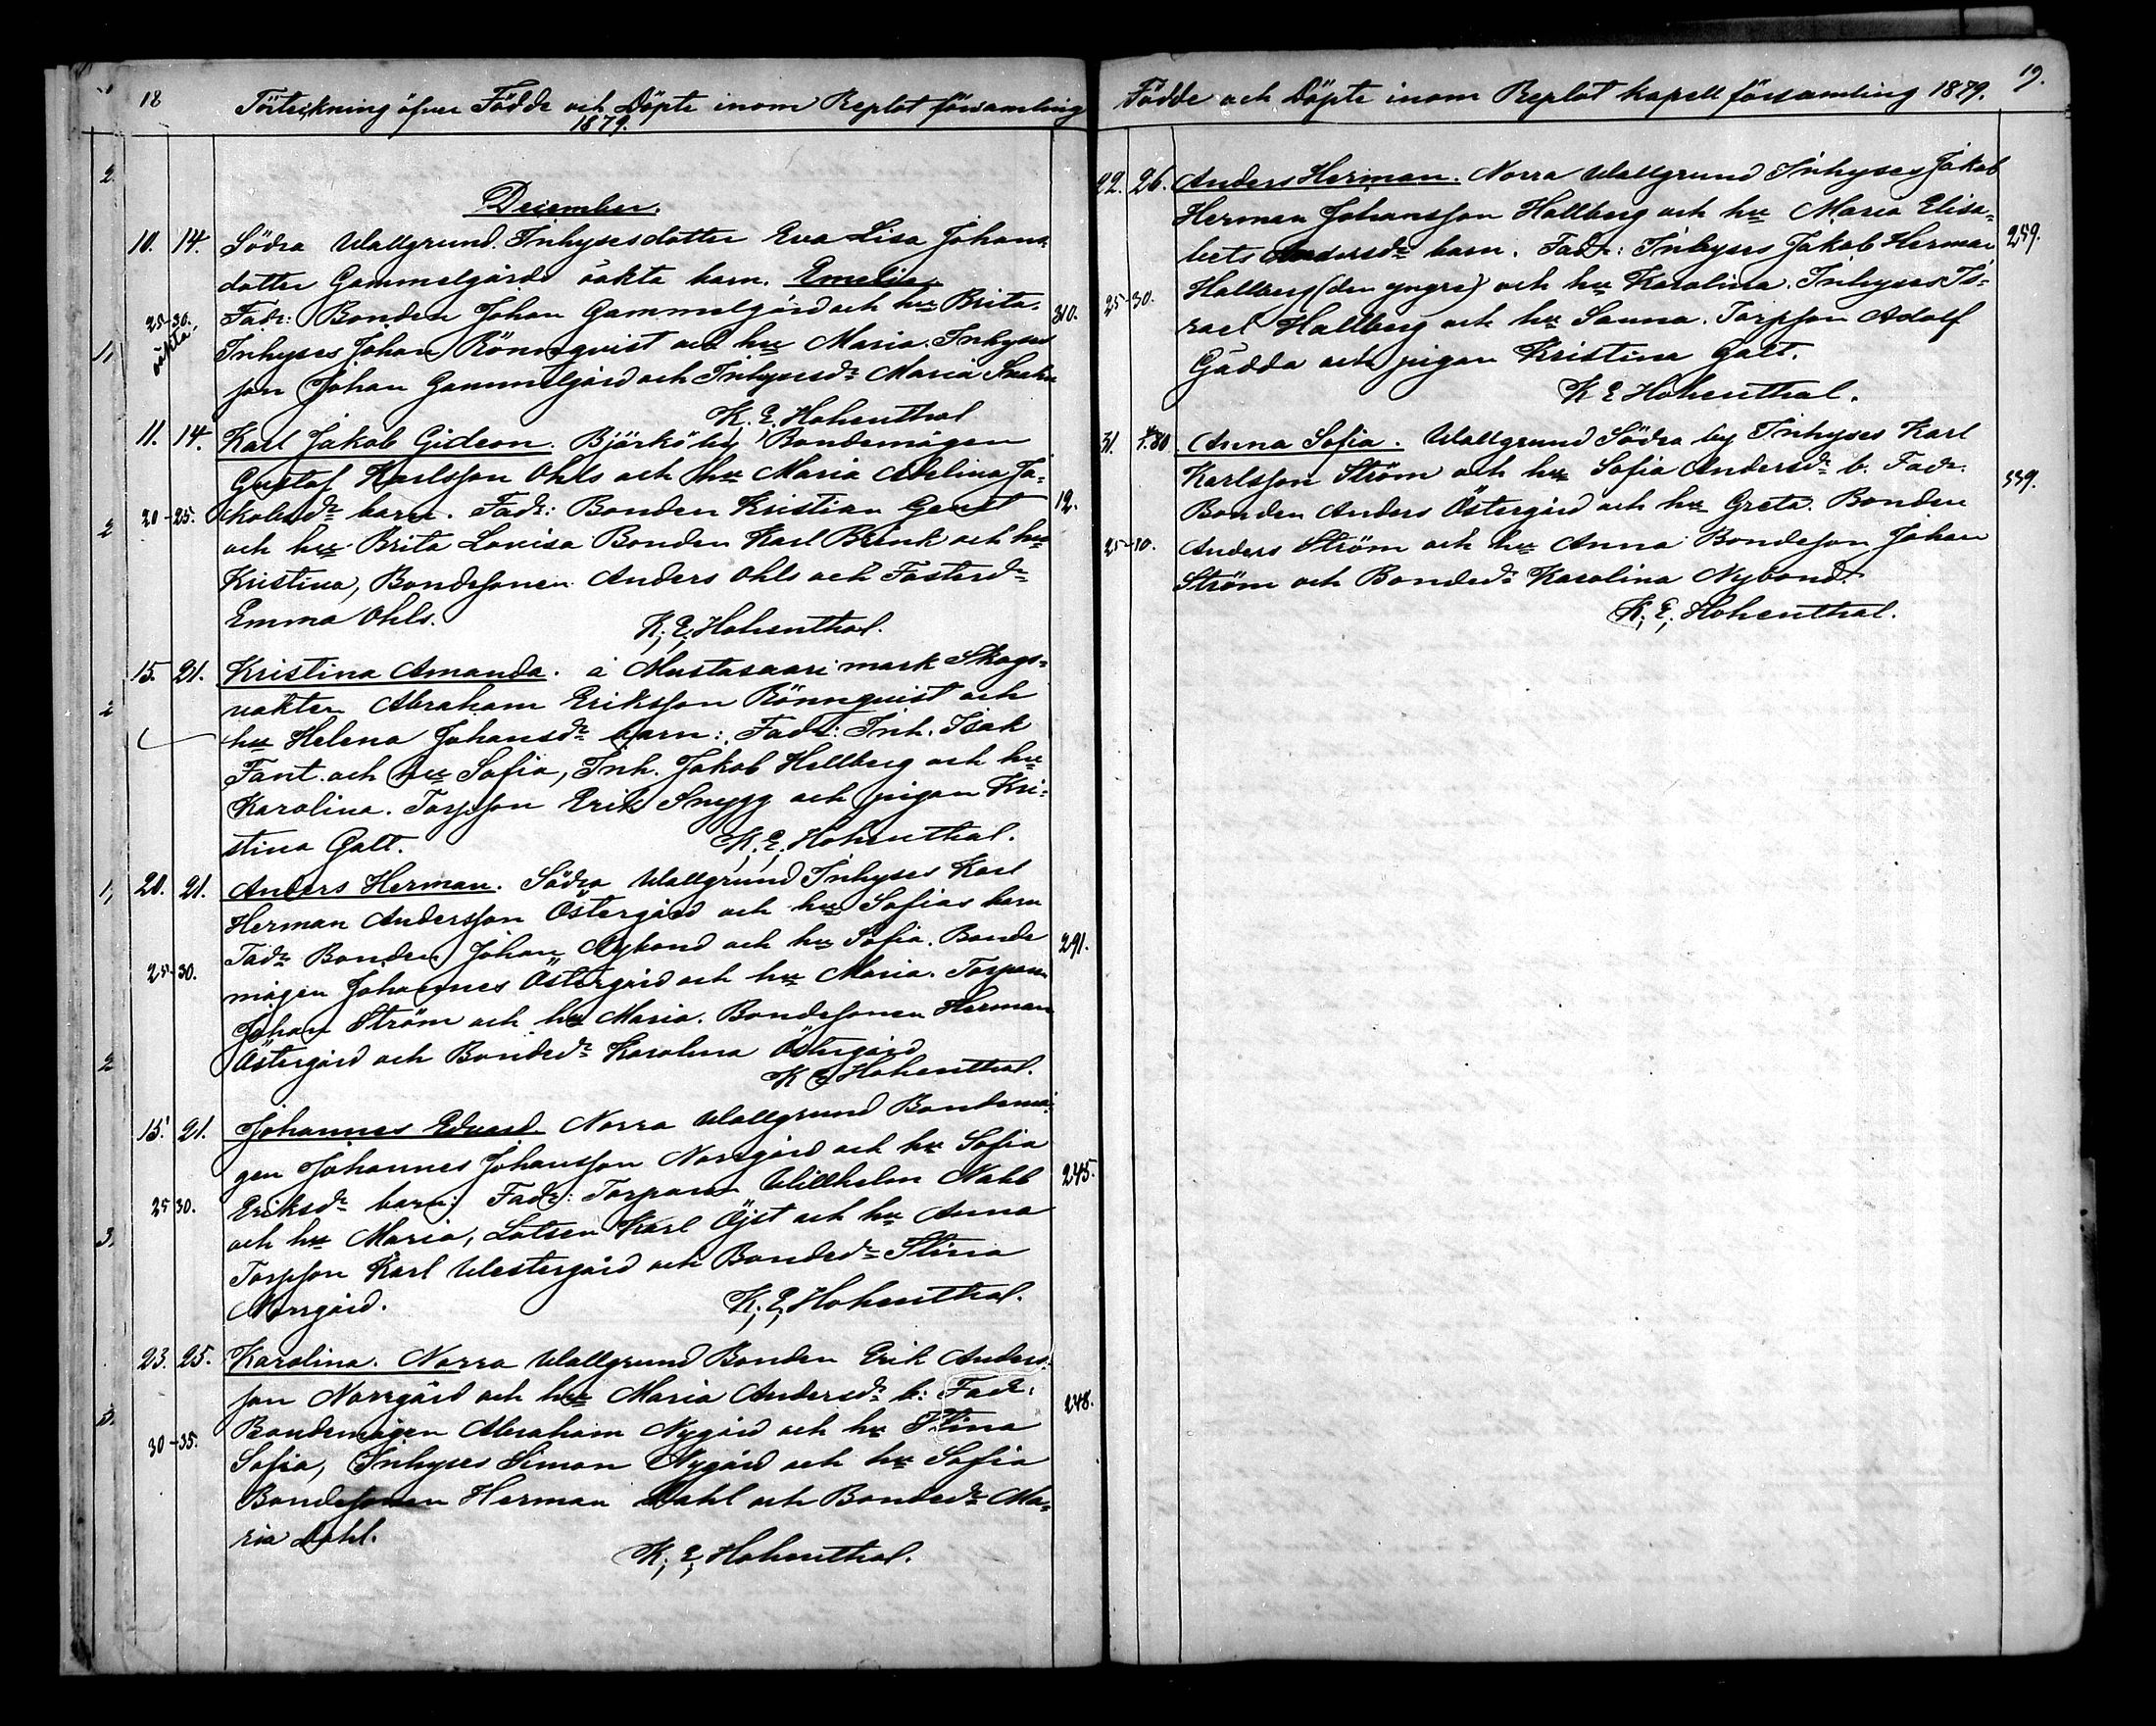 18
Förteckning öfver Födde och Döpte inom Replot församling
1879.
December.
10. 14. Södra Wallgrund. Inhysesdotter Eva Lisa Johans-
dotter Gammelgårds oäkta barn. Emelie.
Fadr: Bonden Johan Gammelgård och hu Brita.
25-30. oäkta. 310.
Inhyses Johan Rönnqvist och hu Maria. Inhyses
son Johan Gammelgård och Inhysesdr Maria
K. E. Hohenthal
11. 14. Karl Jakob Gideon. Björköby Bondemågen
Gustaf Karlsson Ohls och hu Maria Adelina Ja-
kobsdr barn. Fadr: Bonden Kristian Genst
20-25. 12.
och hu Brita Lovisa Bonden Karl Brenk och hu
Kristina, Bondesonen Anders Ohls och Fosterdr
Emma Ohls.
K. E. Hohenthal.
15. 21. Kristina Amanda. å Mustasaari mark Skogs-
vakten Abraham Eriksson Rönnqvist och
hu Helena Johansdr barn: Fadr: Inh. Isak
Fant och hu Sofia, Inh. Jakob Hellberg och hu
Karolina. Torpson Erik Snygg och pigan Kri-
stina Galt.
K. E. Hohenthal.
20. 21. Anders Herman. Södra Wallgrund Inhyses Karl
Herman Andersson Östergård och hu Sofias barn
Fadr Bonden Johan Nybond och hu Sofia. Bonde
25-30. 291.
mågen Johannes Östergård och hu Maria. Torparen
Johan Ström och hu Maria. Bondesonen Herman
Östergård och Bondedr Karolina Östergård
K E Hohenthal.
15. 21. Johannes Edvard Norra Wallgrund Bondemå-
gen Johannes Johansson Norrgård och hu Sofia
Eriksdr barn: Fadr: Torparen Willhelm Nabb
25 30. 245.
och hu Maria, Lotsen Karl Öjst och hu Anna
Torpson Karl Westergård och Bondedr Stina
Norrgård.
K. E. Hohenthal.
23. 25. Karolina. Norra Wallgrund Bonden Erik Anders-
son Norrgård och hu Maria Andersdr b: Fadr:
248.
Bondemågen Abraham Nygård och hu Stina
30-35.
Sofia, Inhyses Simon Nygård och hu Sofia
Bondesonen Herman Dahl och Bondedr Ma-
ria Dahl.
K. E. Hohenthal.
Födde och Döpte inom Replot kapell församling 1879.
19.
22. 26. Anders Herman. Norra Wallgrund Inhyses Jakob
Herman Johansson Hallberg och hu Maria Elisa-
bets Andersdr barn. Fadr: Inhyses Jakob Herman
259.
Hallberg (den yngre) och hu Karolina. Inhyses Is-
25-30.
rael Hallberg och hu Sanna. Torpson Adolf
Gädda och pigan Kristina Galt.
K E Hohenthal.
31. Anna Sofia. Wallgrund Södra by Inhyses Karl
Karlsson Ström och hu Sofia Andersdr b. Fadr.
339.
Bonden Anders Östergård och hu Greta. Bonden
25-30.
Anders Ström och hu Anna Bondeson Johan
Ström och Bondedr Karolina Nybond.
K. E. Hohenthal.